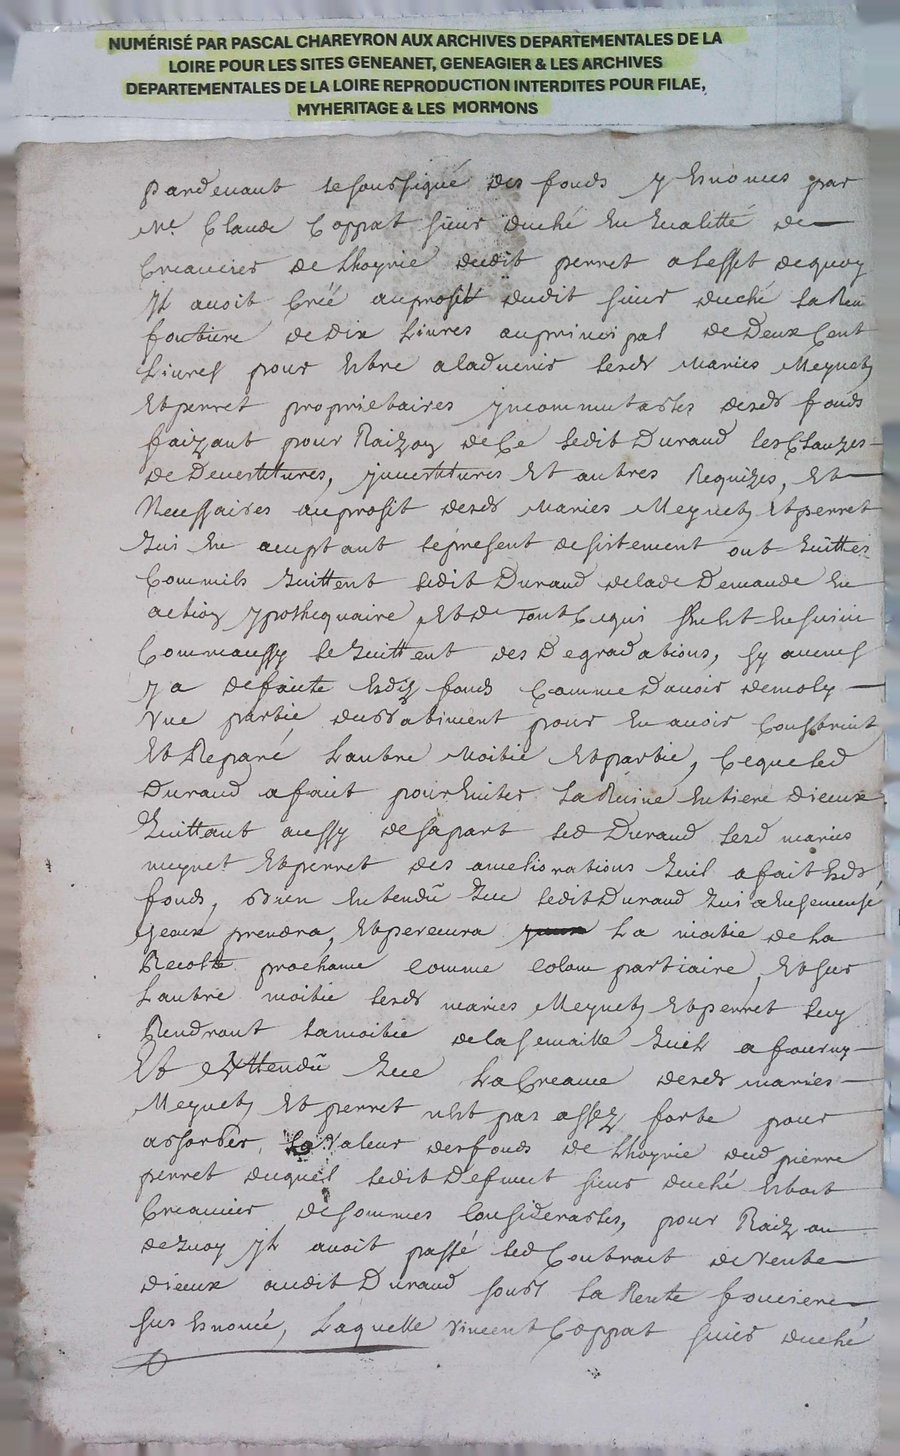 NUMÉRISÉ PAR PASCAL CHAREYRON AUX ARCHIVES DEPARTEMENTALES DE LA
LOIRE POUR LES SITES GENEANET, GENEAGIER & LES ARCHIVES
DEPARTEMENTALES DE LA LOIRE REPRODUCTION INTERDITES POUR FILAE,
MYHERITAGE & LES MORMONS
pardevant le soussigné des fonds y Enoncés par
Me. Claude Coppat sieur duché En qualitté de
Creancier de Lhoyrie dudit perret a leffet de quoy
jl avoit Créé au profit dudit sieur duché la Ren
fontiere de dix Livres au principal de Deux Cent
Livres pour Estre a ladvenir lesds Maries Meynet
Et perret proprietaires yncommutables desds fonds
faizant pour Raizon de Ce ledit Durand les Clauzes
de Devestitures, jnvestitures Et autres Requizes, Et
Necessaires au profit desds Maries Meynet Et perret
qui En acceptant le present desistement ont quittés
Comme ils quittent ledit Durand de lade Demande En
action ypothequaire, Et de tout Ce qui sen Est Ensuivi
Comme aussy le quittent des Degradations, sy aucunes
y a de faitte Esds fonds Comme Davoir demoly
une partie dudt batiment pour En avoir Construit
Et Reparé Lautre Moitié Et partie, Ce que led
Durand a fait pour Eviter La Ruine Entiere diceux
Quittant aussy de sa part led Durand lesd maries
meynet Et perret des ameliorations quil a fait Esds
fonds, Bien Entendu que ledit Durand qui a Ensemensé
yceux prendra, Et percevra La moitié de La
Recolte prochaine comme colom partiaire, Et sur
Lautre moitié lesds maries Meynet Et perret luy
Rendront la moitié de la semaille quil a fourny
Et Attendu que La Creance desds maries
Meynet Et perret nEst pas assez forte pour
absorber La Valeur des fonds de Lhoyrie dud pierre
perret duquel ledit Defunct sieur duché Estoit
Creancier de sommes Considerables, pour Raizon
de quoy jl avoit passé led Contract de Vente
diceux audit Durand soubs La Rente fonciere
sus Enoncée, Laquelle Vincent Coppat sieur duché